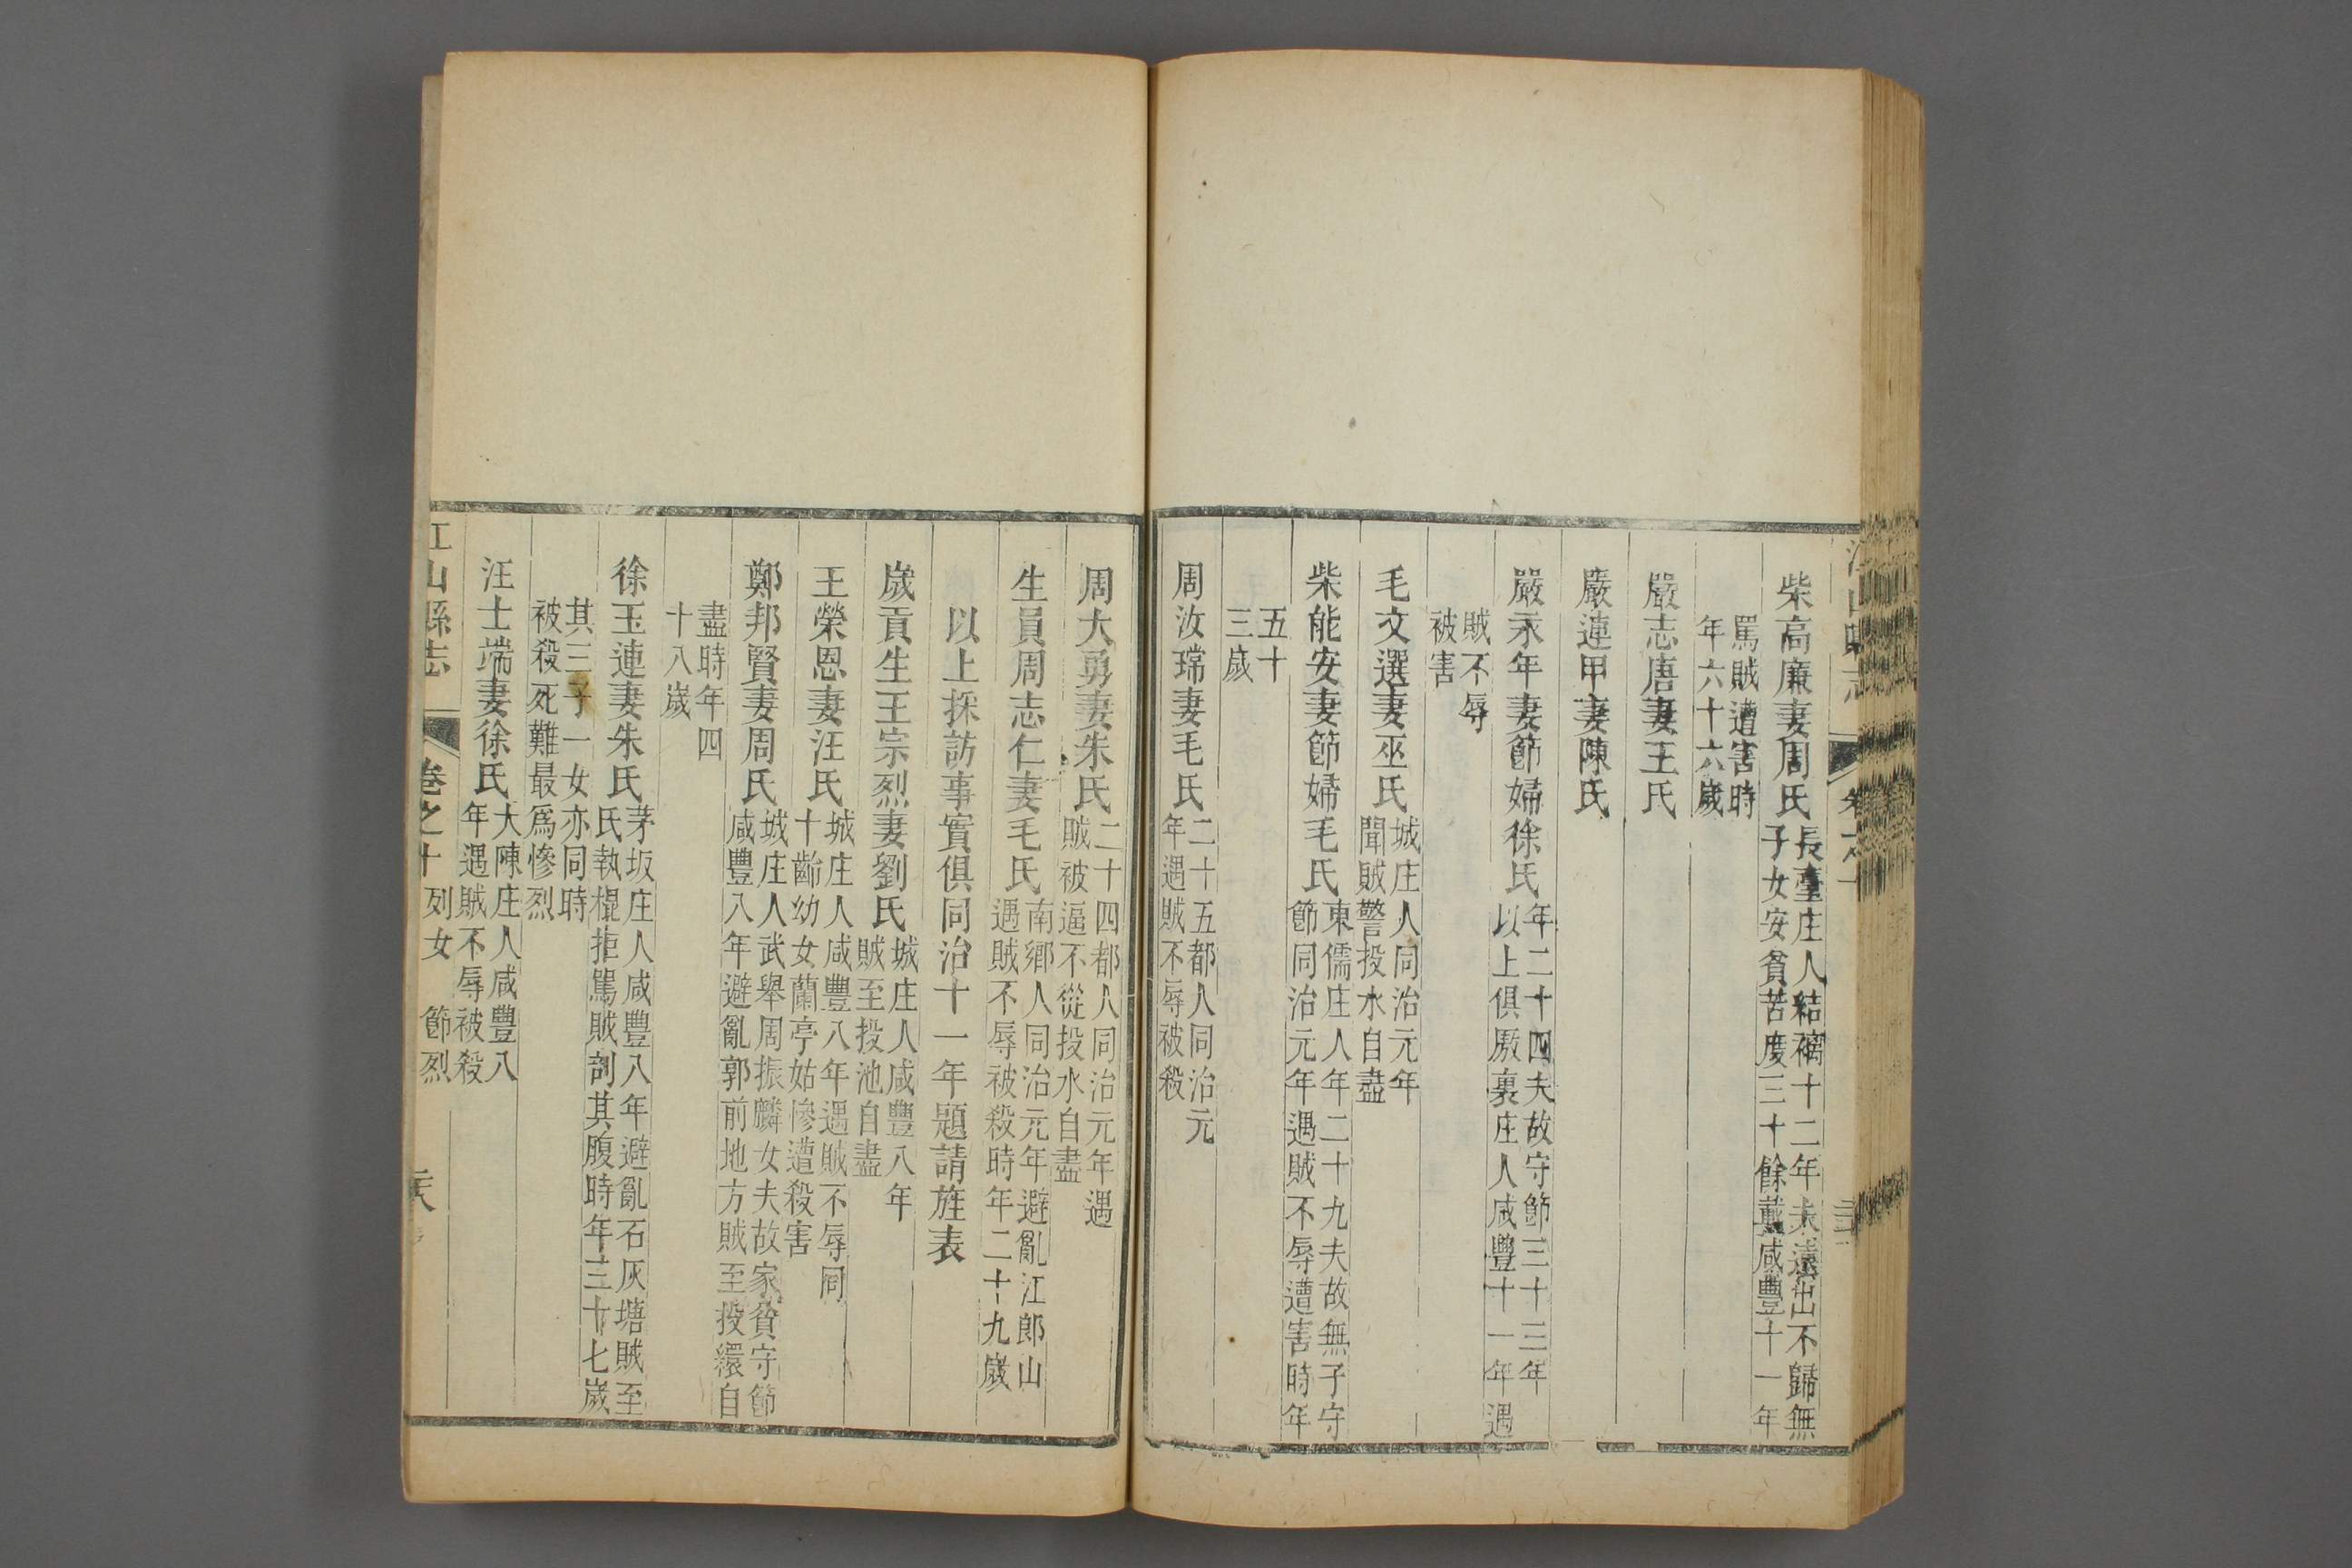 柴高廉妻周氏
長臺庄人結褵十二年夫遠出不歸無
子女安貧苦度三十餘載咸豐十一年
罵賊遭害時
年六十六歲
嚴志唐妻王氏
嚴連甲妻陳氏
嚴永年妻節婦徐氏
年二十四夫故守節三十三年
以上俱厫裏庄人咸豐十一年遇
賊不辱
被害
毛文選妻巫氏
城庄人同治元年
聞賊警投水自盡
柴能安妻節婦毛氏
東儒庄人年二十九夫故無子守
節同治元年遇賊不辱遭害時年
五十
三歲
周汝瑞妻毛氏
二十五都人同治元
年遇賊不辱被殺
周大勇妻朱氏
二十四都人同治元年遇
賊被逼不從投水自盡
生員周志仁妻毛氏
南鄉人同治元年避亂江郎山
遇賊不辱被殺時年二十九歲
以上採訪事實俱同治十一年題請旌表
歲貢生王宗烈妻劉氏
城庄人咸豐八年
賊至投池自盡
王榮恩妻汪氏
城庄人咸豐八年遇賊不辱同
十齡幼女蘭亭姑慘遭殺害
鄭邦賢妻周氏
城庄人武舉周振麟女夫故家貧守節
咸豐八年避亂郭前地方賊至投繯自
盡時年四
十八歲
徐玉連妻朱氏
茅坂庄人咸豐八年避亂石灰塘賊至
氏執棍拒罵賊剖其腹時年三十七歲
其三子一女亦同時
被殺死難最爲慘烈
汪士端妻徐氏
大陳庄人咸豐八
年遇賊不辱被殺
江山縣志
卷之十 列女 節烈